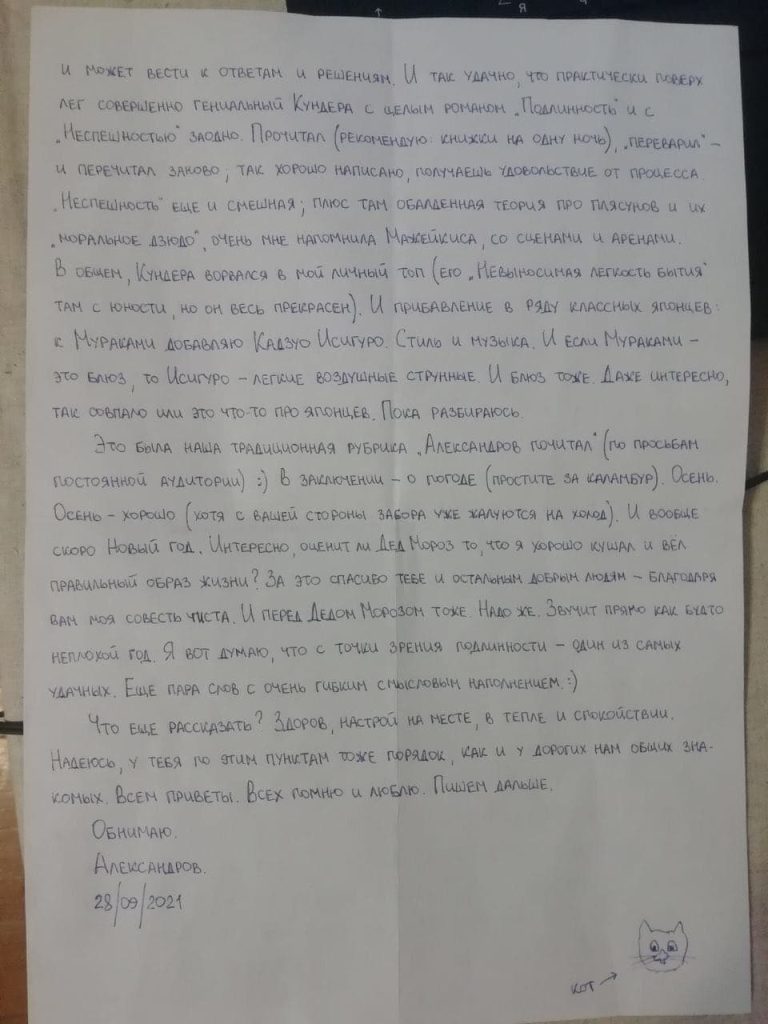 и может вести к ответам и решениям. И так удачно, что практически поверх
лег совершенно гениальный Кундера с целым романом „Подлинность" и с
„Неспешностью" заодно. Прочитал (рекомендую: книжки на одну ночь), „переварил" –
и перечитал заново; так хорошо написано, получаешь удовольствие от процесса.
„Неспешность" еще и смешная; плюс там обалденная теория про плясунов и их
„моральное дзюдо", очень мне напомнила Мажейкиса, со сценами и аренами.
В общем, Кундера ворвался в мой личный топ (его „Невыносимая легкость бытия"
там с юности, но он весь прекрасен). И прибавление в ряду классных японцев:
к Мураками добавляю Кадзуо Исигуро. Стиль и музыка. И если Мураками –
это блюз, то Исигуро – легкие воздушные струнные. И блюз тоже. Даже интересно,
так совпало или это что-то про японцев. Пока разбираюсь.
Это была наша традиционная рубрика „Александров почитал" (по просьбам
постоянной аудитории) :) В заключении – о погоде (простите за каламбур). Осень.
Осень – хорошо (хотя с вашей стороны забора уже жалуются на холод). И вообще
скоро Новый год. Интересно, оценит ли Дед Мороз то, что я хорошо кушал и вёл
правильный образ жизни? За это спасибо тебе и остальным добрым людям – благодаря
вам моя совесть чиста. И перед Дедом Морозом тоже. Надо же. Звучит прямо как будто
неплохой год. Я вот думаю, что с точки зрения подлинности – один из самых
удачных. Еще пара слов с очень гибким смысловым наполнением. :)
Что еще рассказать? Здоров, настрой на месте, в тепле и спокойствии.
Надеюсь, у тебя по этим пунктам тоже порядок, как и у дорогих нам общих зна-
комых. Всем приветы. Всех помню и люблю. Пишем дальше.
Обнимаю.
Александров.
28/09/2021
кот →